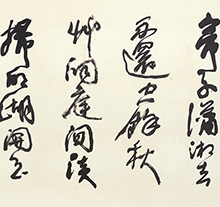 帝子瀟湘去
不還空餘秋
艸洞庭間淡
掃明湖開玉